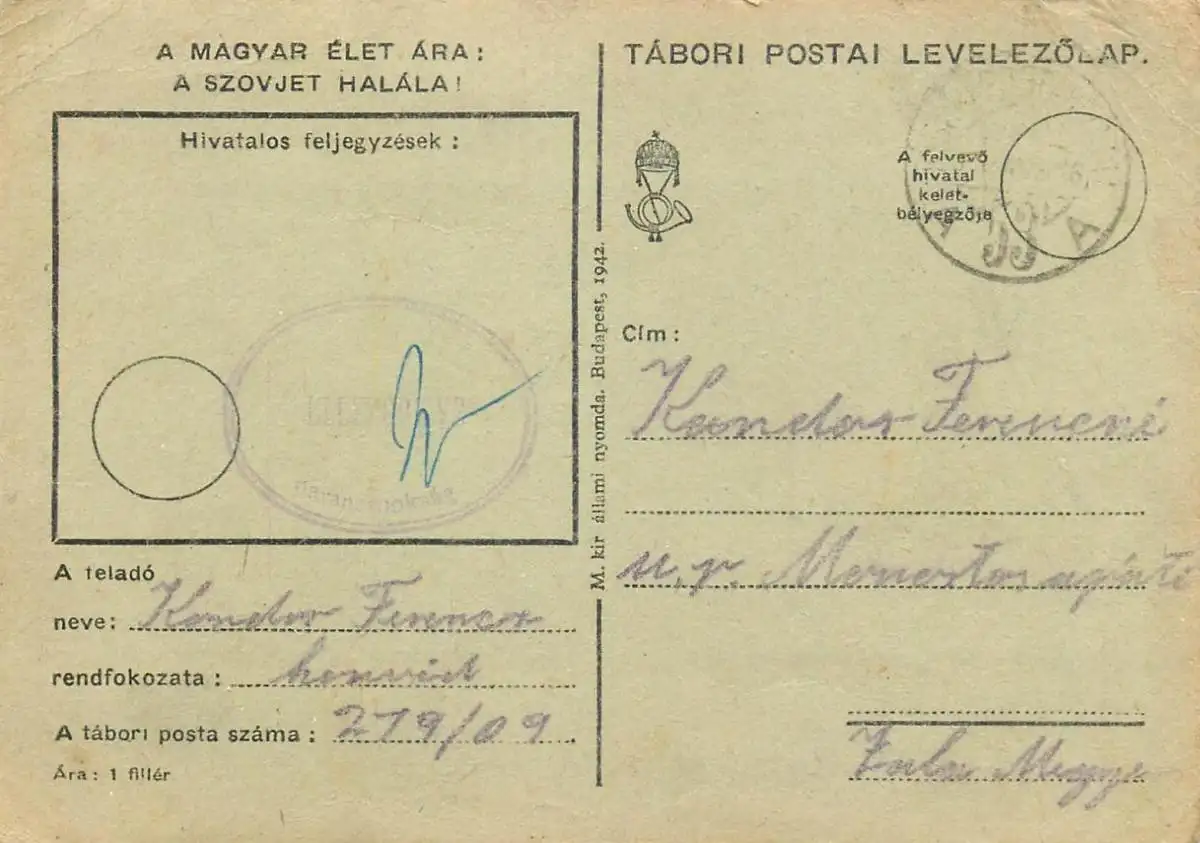 A MAGYAR ÉLET ÁRA:
A SZOVJET HALÁLA!
Hivatalos feljegyzések:
A feladó
neve: Kondor Ferenc
rendfokozata: honvéd
A tábori posta száma: 219/09
Ára: 1 fillér
M. kir állami nyomda. Budapest, 1942.
TÁBORI POSTAI LEVELEZŐLAP.
A felvevő
hivatal
kelet-
bélyegzője
A 
A
Cím:
Kondor Ferencné
u. p.
Zala Megye